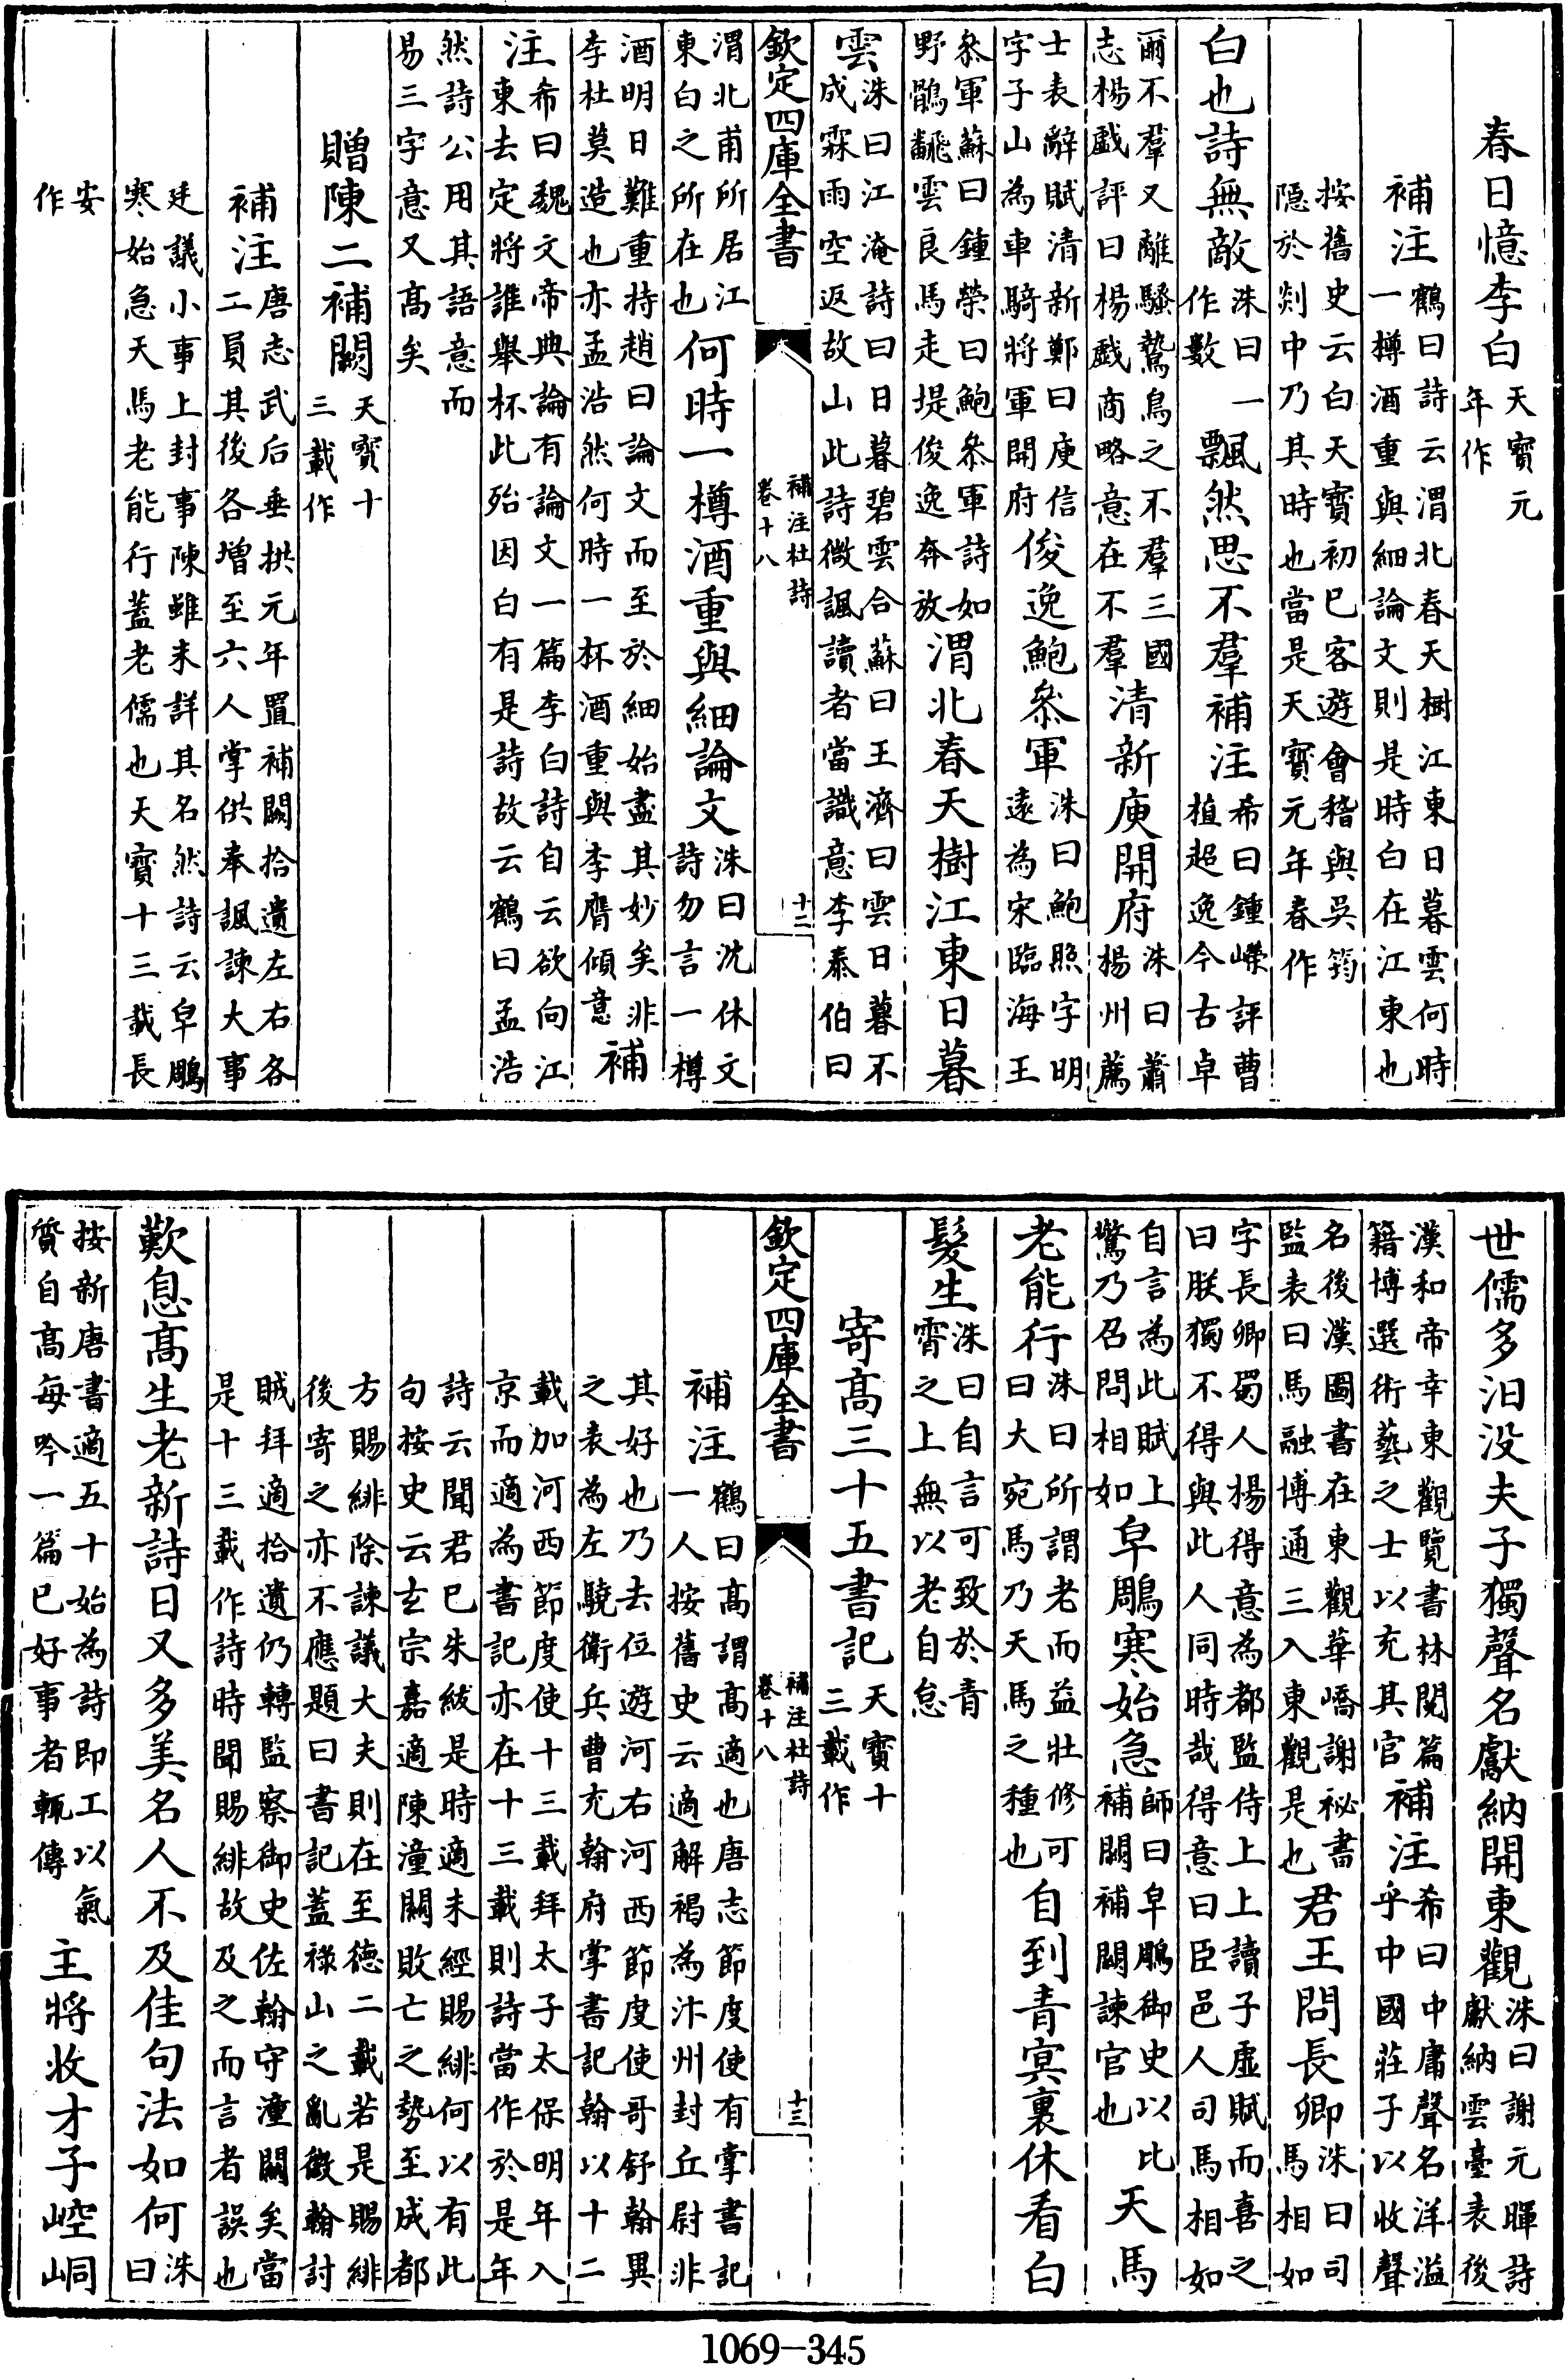 春日憶李白天寶元年作
補注鶴曰詩云渭北春天樹江東日暮雲何時一樽酒重與細論文則是時白在江東也
按舊史云白天寶初巳客遊會稽與吳筠隱於剡中乃其時也當是天寶元年春作
白也詩無敵洙曰一作數飄然思不羣補注希曰鍾嶸評曹植超逸今古卓
爾不羣又離騷鷙鳥之不羣三國志楊戲評曰楊戲商略意在不羣清新庾開府洙曰蕭楊州薦
士表辭賦清新鄭曰庾信字子山為車騎將軍開府俊逸鮑叅軍洙曰鮑照字明遠為宋臨海王
叅軍蘇曰鍾榮曰鮑叅軍詩如野鶻飜雲良馬走堤俊逸奔放渭北春天樹江東日暮
雲洙曰江淹詩曰日暮碧雲合蘇曰王濟曰雲日暮不成霖雨空返故山此詩微諷讀者當識意李泰伯曰
欽定四庫全書 補注杜詩卷十八 十二
渭北甫所居江東白之所在也何時一樽酒重與細論文洙曰沈休文詩勿言一樽
酒明日難重持趙曰論文而至於細始盡其妙矣非李杜莫造也亦孟浩然何時一杯酒重與李膺傾意補
注希曰魏文帝典論有論文一篇李白詩自云欲向江東去定將誰舉杯此殆因白有是詩故云鶴曰孟浩
然詩公用其語意而易三字意又髙矣
贈陳二補闕天寶十三載作
補注唐志武后垂拱元年置補闕拾遺左右各二員其後各增至六人掌供奉諷諫大事
廷議小事上封事陳雖未詳其名然詩云皁鵰寒始急天馬老能行蓋老儒也天寶十三載長
安作
世儒多汩没夫子獨聲名獻納開東觀洙曰謝元暉詩獻納雲臺表後
漢和帝幸東觀覽書林閱篇籍博選術藝之士以充其官補注希曰中庸聲名洋溢乎中國莊子以收聲
名後漢圖書在東觀華嶠謝祕書監表曰馬融博通三入東觀是也君王問長卿洙曰司馬相如
字長卿蜀人楊得意為都監侍上上讀子虛賦而喜之曰朕獨不得與此人同時哉得意曰臣邑人司馬相如
自言為此賦上驚乃召問相如皁鵰寒始急師曰皁鵰御史以比補闕補闕諫官也天馬
老能行洙曰所謂老而益壯修可曰大宛馬乃天馬之種也自到青冥裏休看白
髮生洙曰自言可致於青霄之上無以老自怠
寄髙三十五書記天寶十三載作
欽定四庫全書 補注杜詩卷十八 十三
補注鶴曰髙謂髙適也唐志節度使有掌書記一人按舊史云適解褐為汴州封丘尉非
其好也乃去位遊河右河西節度使哥舒翰異之表為左驍衛兵曹充翰府掌書記翰以十二
載加河西節度使十三載拜太子太保明年入京而適為書記亦在十三載則詩當作於是年
詩云聞君巳朱紱是時適未經賜緋何以有此句按史云玄宗嘉適陳潼關敗亡之勢至成都
方賜緋除諫議大夫則在至德二載若是賜緋後寄之亦不應題曰書記蓋禄山之亂徵翰討
賊拜適拾遺仍轉監察御史佐翰守潼關矣當是十三載作詩時聞賜緋故及之而言者誤也
歎息髙生老新詩日又多美名人不及佳句法如何洙曰
按新唐書適五十始為詩即工以氣質自髙每吟一篇巳好事者輒傳主將收才子崆峒
1069-345